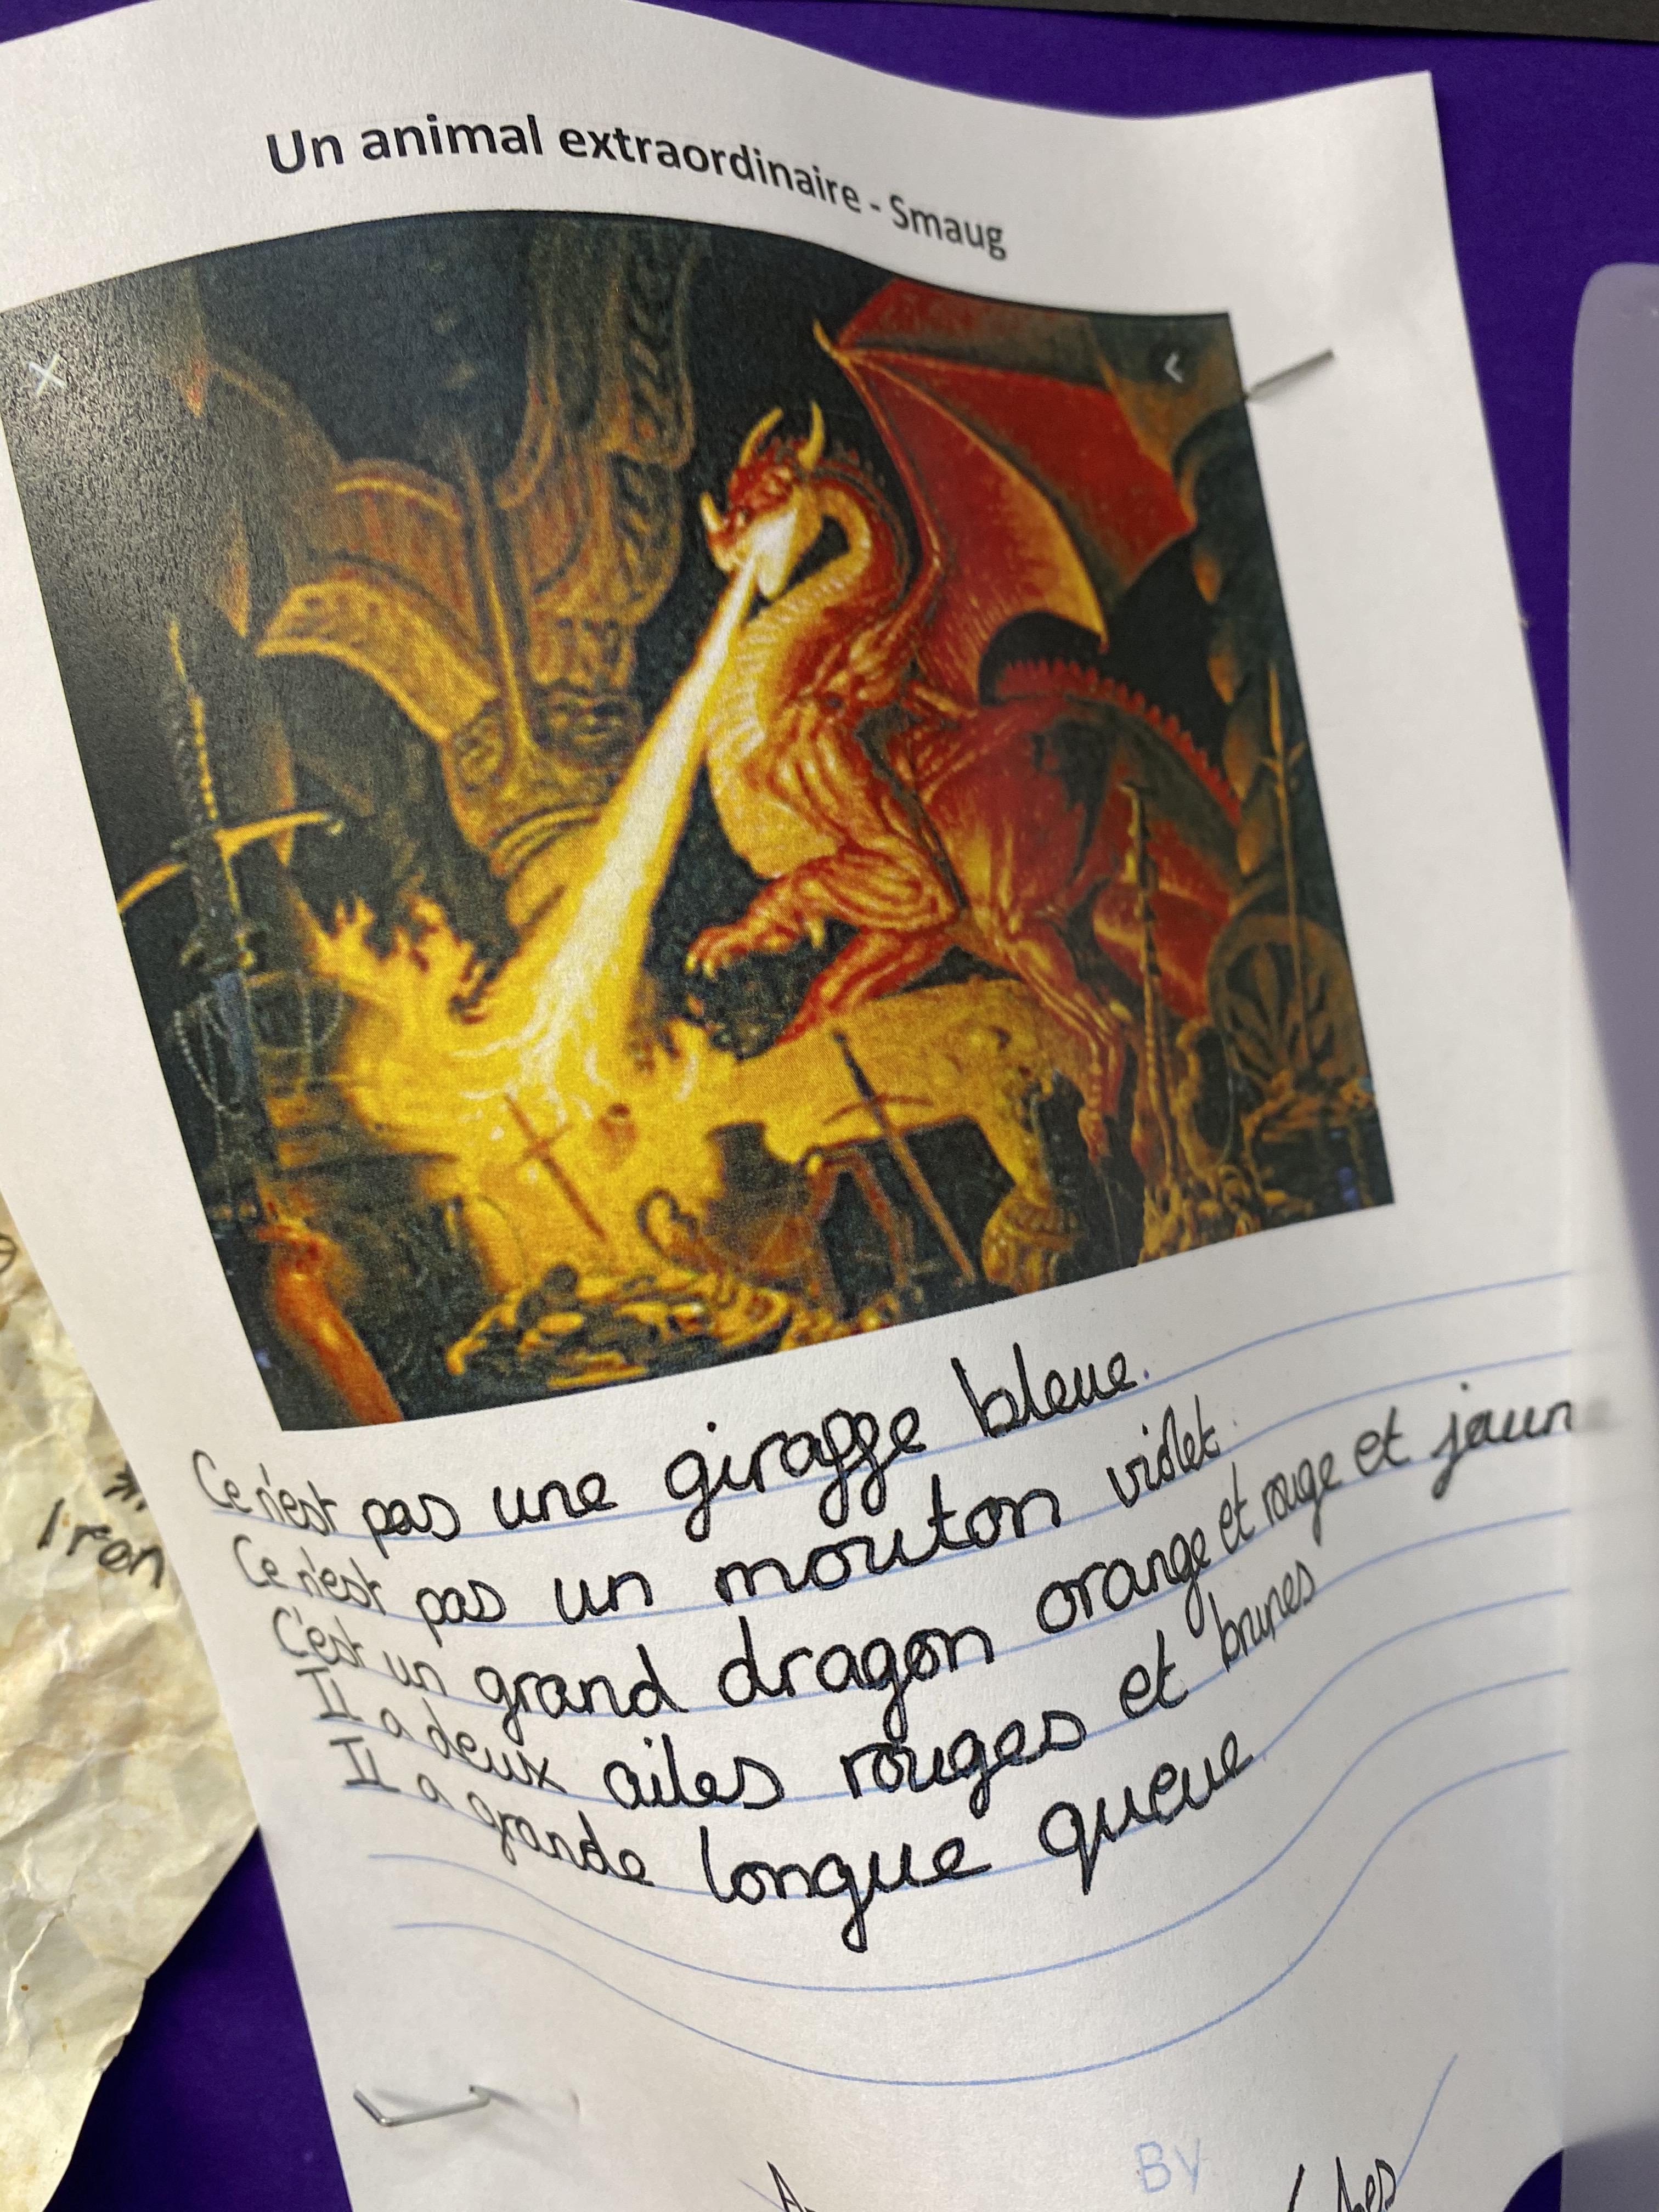 Un animal extraordinaire - Smaug
Ce n'est pas une giraffe bleue.
Ce n'est pas un mouton violet.
C'est un grand dragon orange et rouge et jaun
Il a deux ailes rouges et brunes
Il a grande longue queue.
Iron
BY